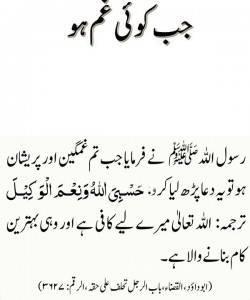 جب کوئی غم ہو
رسول اللہ ﷺ نے فرمایا جب تم غمگین اور پریشان
ہو تو یہ دعا پڑھ لیا کرو، حَسْبِيَ اللهُ وَنِعْمَ الْوَكِيْلَ
ترجمہ: اللہ تعالیٰ میرے لیے کافی ہے اور وہی بہترین
کام بنانے والا ہے۔
(ابوداؤد، القضاء، باب الرجل تحلف علی حقہ، الرقم: ۳۶۲۷)